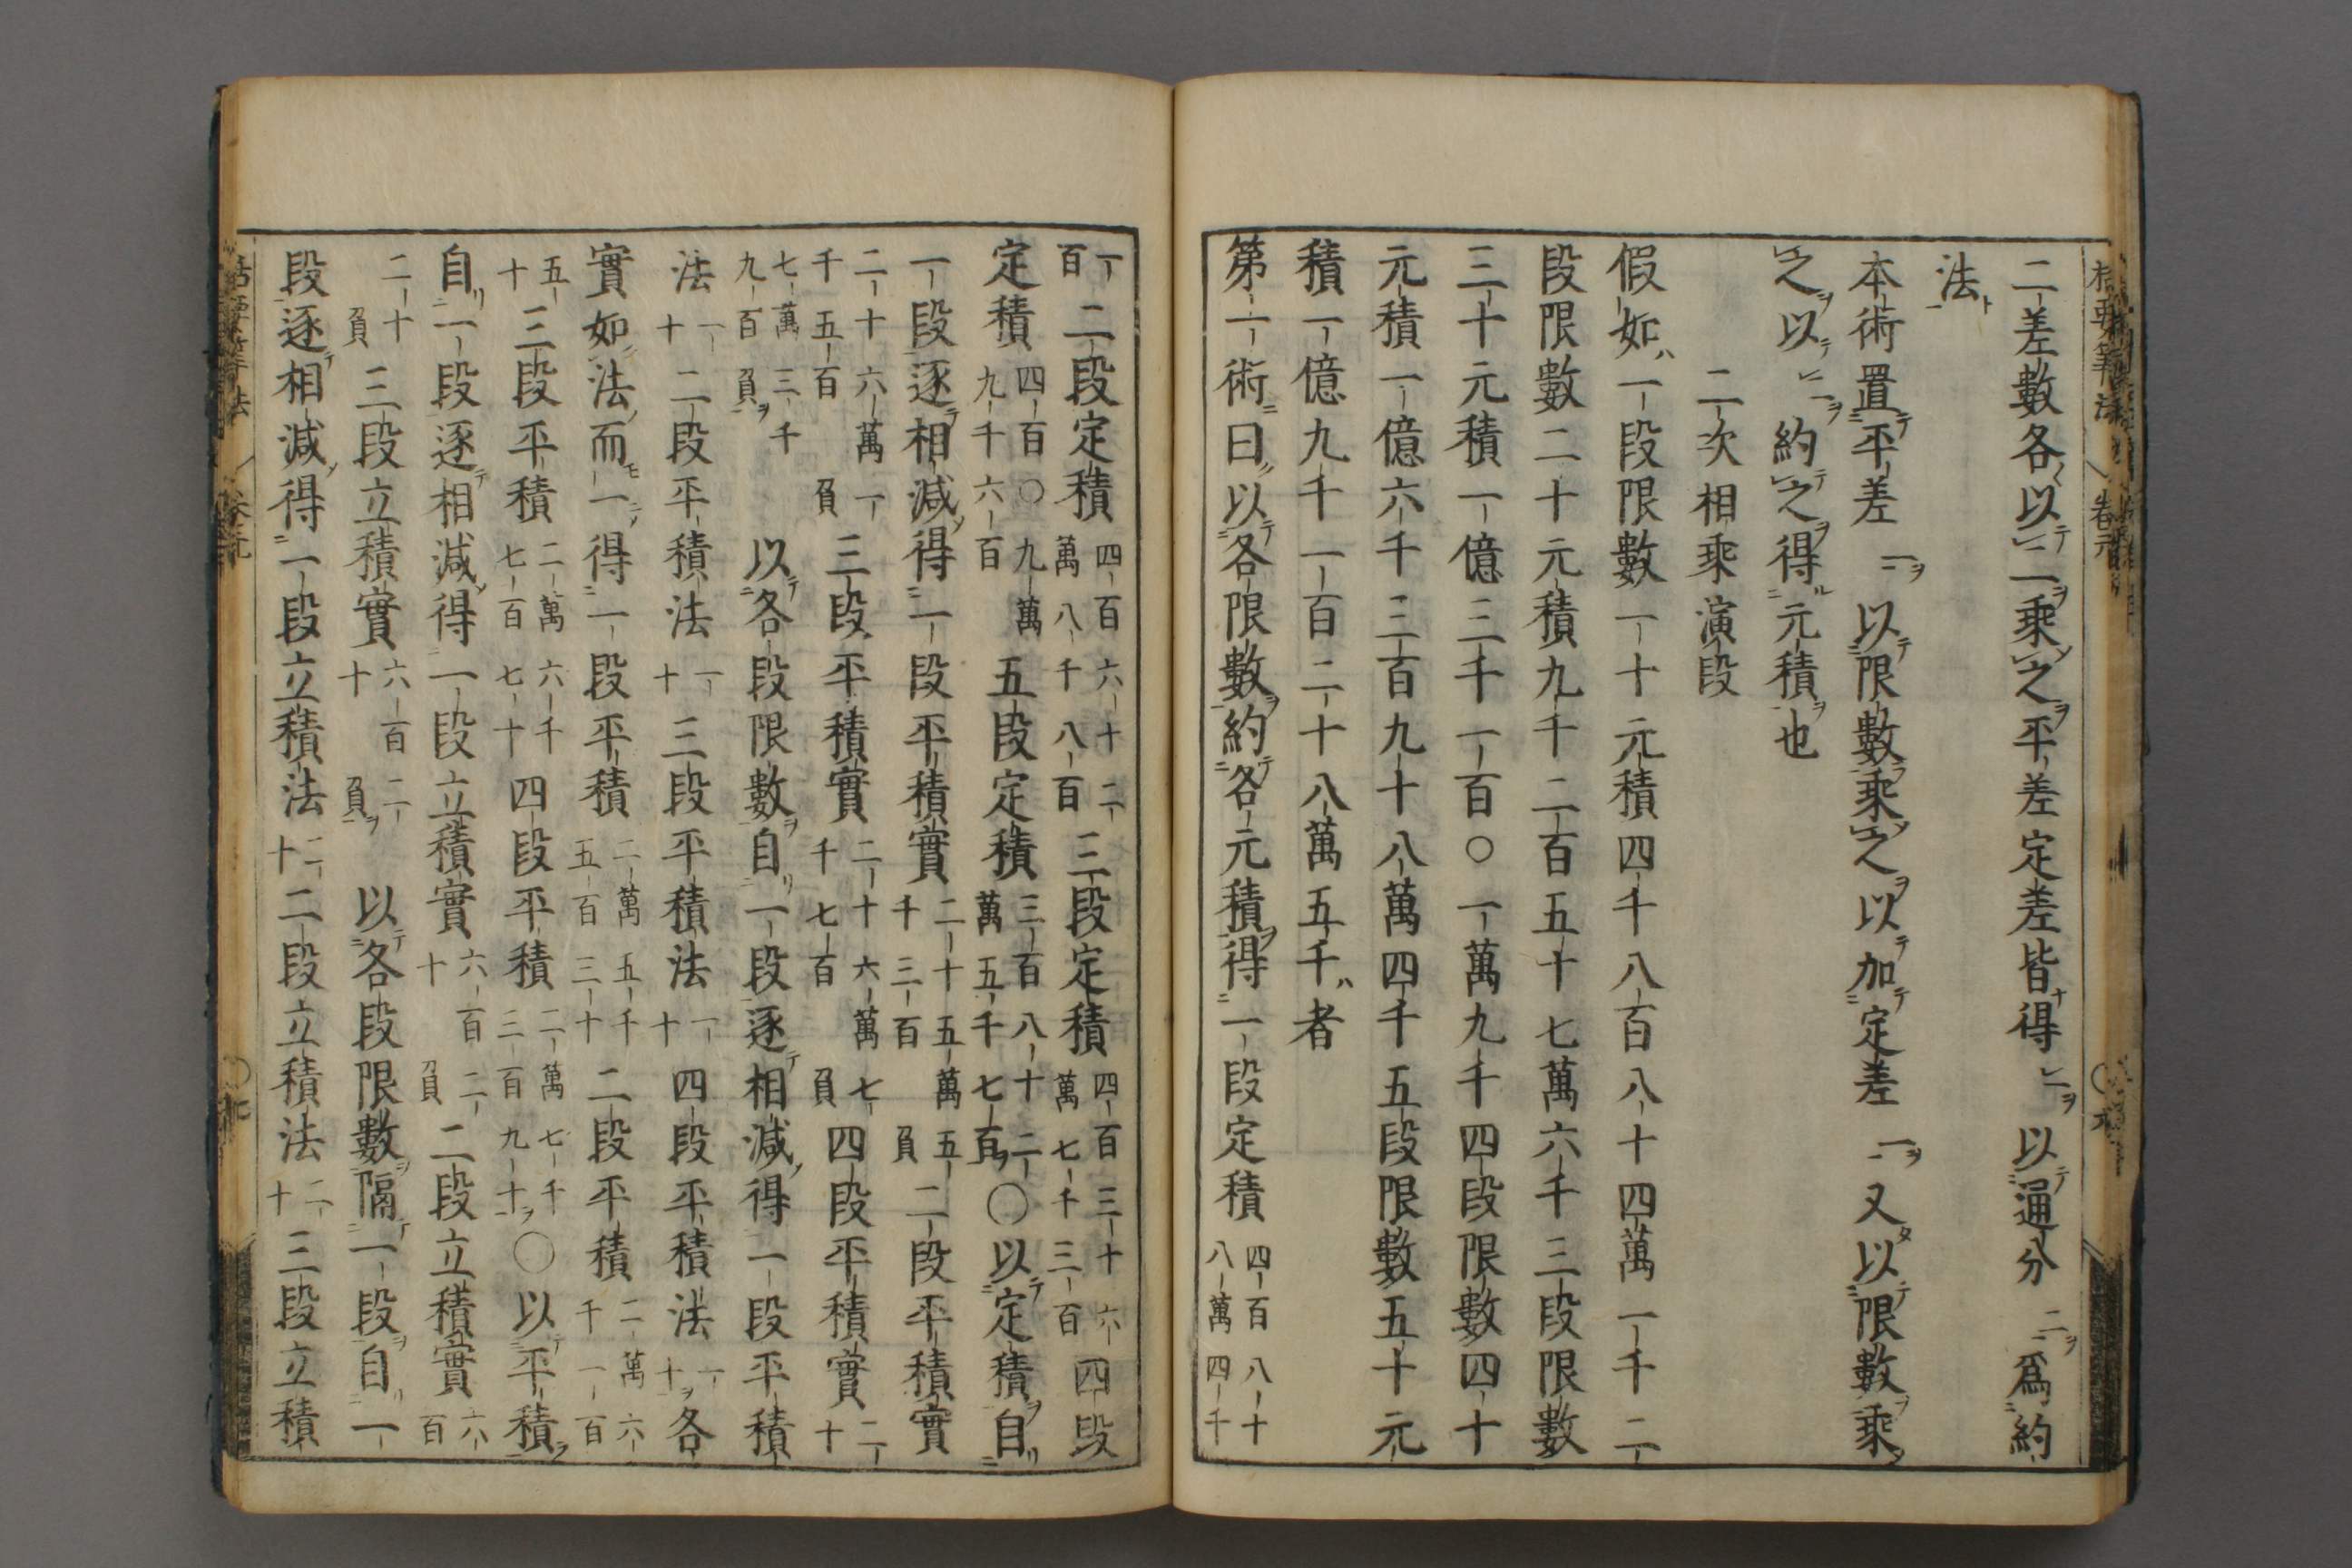 二差數各以二乘之平差定差皆得以通分二爲約
法
本術置平差以限數乘之以加定差又以限數乘
之以約之得元積也
二次相乘演段
假如一段限數一十元積四千八百八十四萬一千二
段限數二十元積九千二百五十七萬六千三段限數
三十元積一億三千一百〇一萬九千四段限數四十
元積一億六千三百九十八萬四千五段限數五十元
積一億九千一百二十八萬五千者
第一術曰以各限數約各元積得一段定積四百八十八萬四千
一百二段定積四百六十二萬八千八百三段定積四百三十六萬七千三百四段
定積四百〇九萬九千六百五段定積三百八十二萬五千七百〇以定積自
一段逐相減得一段平積實二十五萬五千三百負二段平積實
二十六萬一千五百負三段平積實二十六萬七千七百負四段平積實二十
七萬三千九百負以各段限數自一段逐相減得一段平積
法一十二段平積法一十三段平積法一十四段平積法一十各
實如法而一得一段平積二萬五千五百三十二段平積二萬六千一百
五十三段平積二萬六千七百七十四段平積二萬七千三百九十〇以平積
自一段逐相減得一段立積實六百二十負二段立積實六百
二十負三段立積實六百二十負以各段限數隔一段自一
段逐相減得一段立積法二十二段立積法二十三段立積